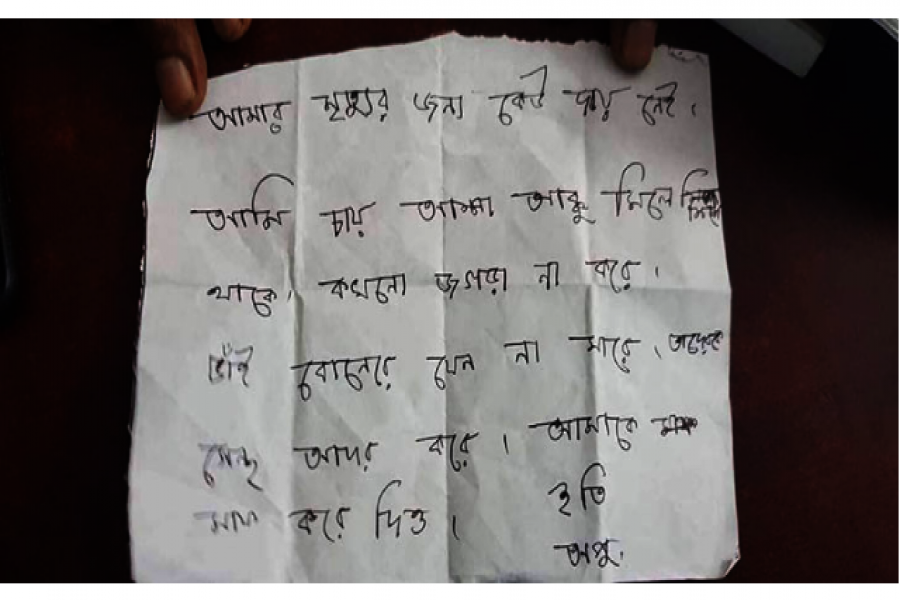 আমার মৃত্যুর জন্য কেউ দায় নেই।
আমি চায় আম্মা আব্বু মিলে মিশে
থাকে। কখনো জগড়া না করে।
ভাই বোনেরে যেন না মারে। তাদেরকে
স্নেহ আদর করে। আমাকে
মাপ করে দিও।
ইতি
অপু.